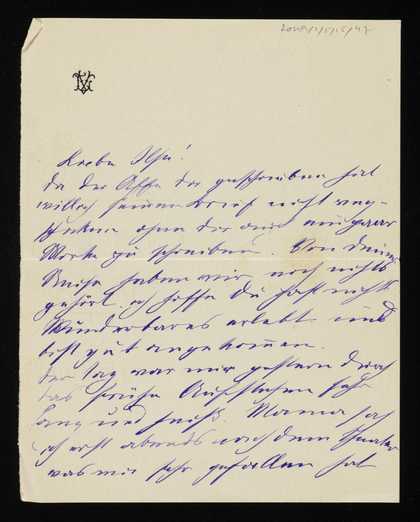 Liebe Ilse!
da der Affe dir geschrieben hat
will ich seinen Brief nicht weg-
schicken ohne dir ein paar
Worte zu schreiben. Von deiner
Reise haben wir noch nichts
gehört. ich hoffe du hast nichts
Wunderbares erlebt und
bist gut angekommen.
Der Tag war mir gestern durch
das frühe Aufstehen sehr
lang und heiß. Mama sah
ich erst abends nach dem Theater
was mir sehr gefallen hat